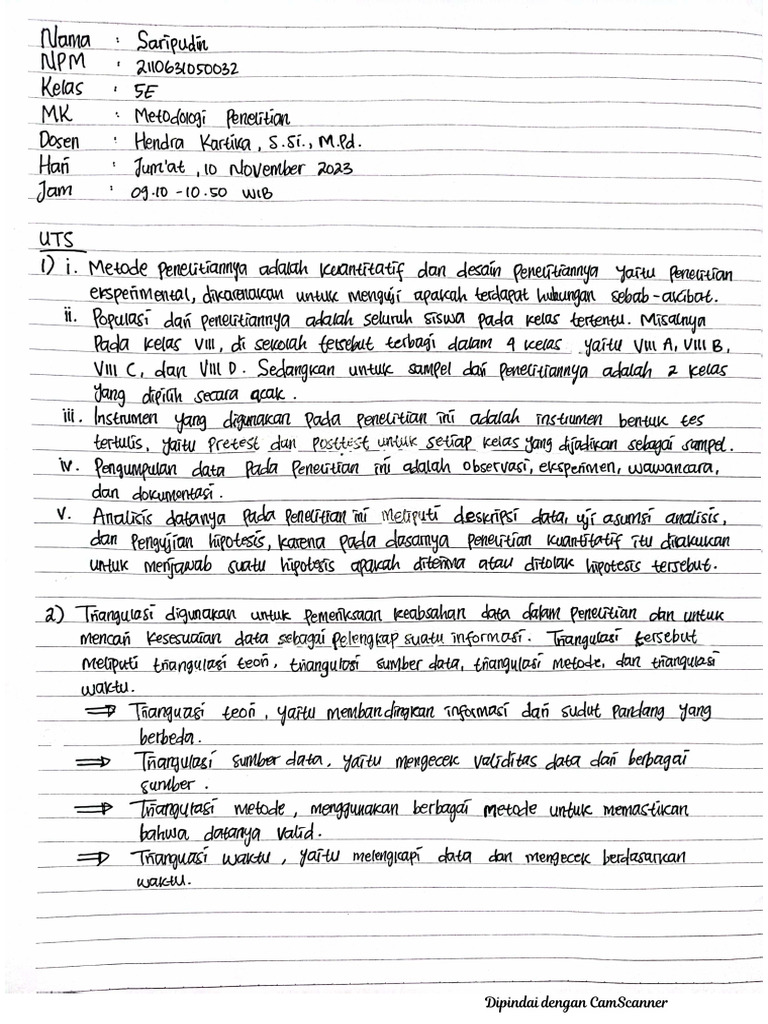 Nama : Saripudin
NPM : 2110631050032
Kelas : 5E
MK : Metodologi Penelitian
Dosen : Hendra Kartika, S.Si., M.Pd.
Hari : Jum'at, 10 November 2023
Jam : 09.10 - 10.50 WIB
UTS
1) i. Metode penelitiannya adalah kuantitatif dan desain penelitiannya yaitu penelitian
eksperimental, dikarenakan untuk menguji apakah terdapat hubungan sebab-akibat.
ii. Populasi dari penelitiannya adalah seluruh siswa pada kelas tertentu. Misalnya
Pada kelas VIII, di sekolah tersebut terbagi dalam 4 kelas yaitu VIII A, VIII B,
VIII C, dan VIII D. Sedangkan untuk sampel dari penelitiannya adalah 2 kelas
yang dipilih secara acak.
iii. Instrumen yang digunakan pada penelitian ini adalah instrumen bentuk tes
tertulis, yaitu pretest dan posttest untuk setiap kelas yang dijadikan sebagai sampel.
iv. Pengumpulan data pada penelitian ini adalah observasi, eksperimen, wawancara,
dan dokumentasi.
v. Analisis datanya pada penelitian ini meliputi deskripsi data, uji asumsi analisis,
dan pengujian hipotesis, karena pada dasarnya penelitian kuantitatif itu dilakukan
untuk menjawab suatu hipotesis apakah diterima atau ditolak hipotesis tersebut.
2) Triangulasi digunakan untuk pemeriksaan keabsahan data dalam penelitian dan untuk
mencari kesesuaian data sebagai pelengkap suatu informasi. Triangulasi tersebut
meliputi triangulasi teori, triangulasi sumber data, triangulasi metode, dan triangulasi
waktu.
⇒ Triangulasi teori, yaitu membandingkan informasi dari sudut pandang yang
berbeda.
⇒ Triangulasi sumber data, yaitu mengecek validitas data dari berbagai
sumber.
⇒ Triangulasi metode, menggunakan berbagai metode untuk memastikan
bahwa datanya valid.
⇒ Triangulasi waktu, yaitu melengkapi data dan mengecek berdasarkan
waktu.
Dipindai dengan CamScanner